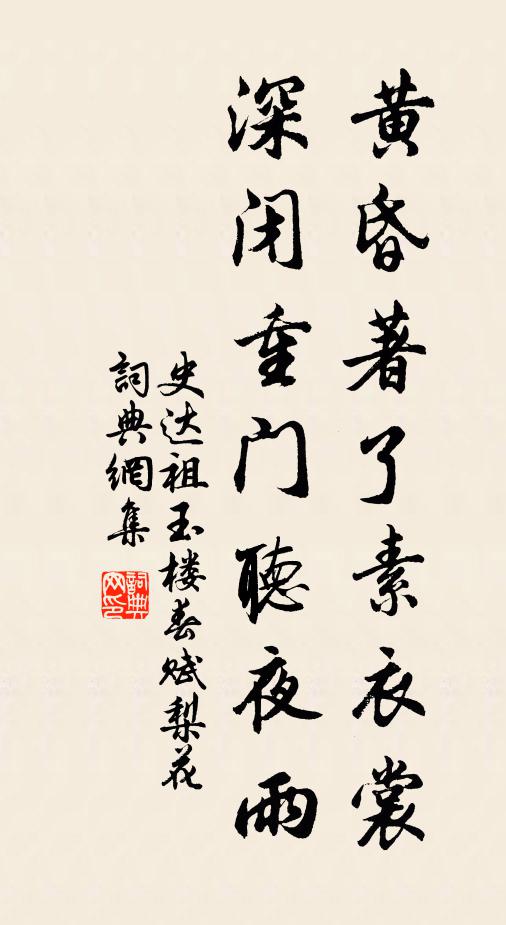 黄昏著了素衣裳
深闭重门聽夜雨
史达祖玉楼春赋梨花
詞典網集
詞典网印